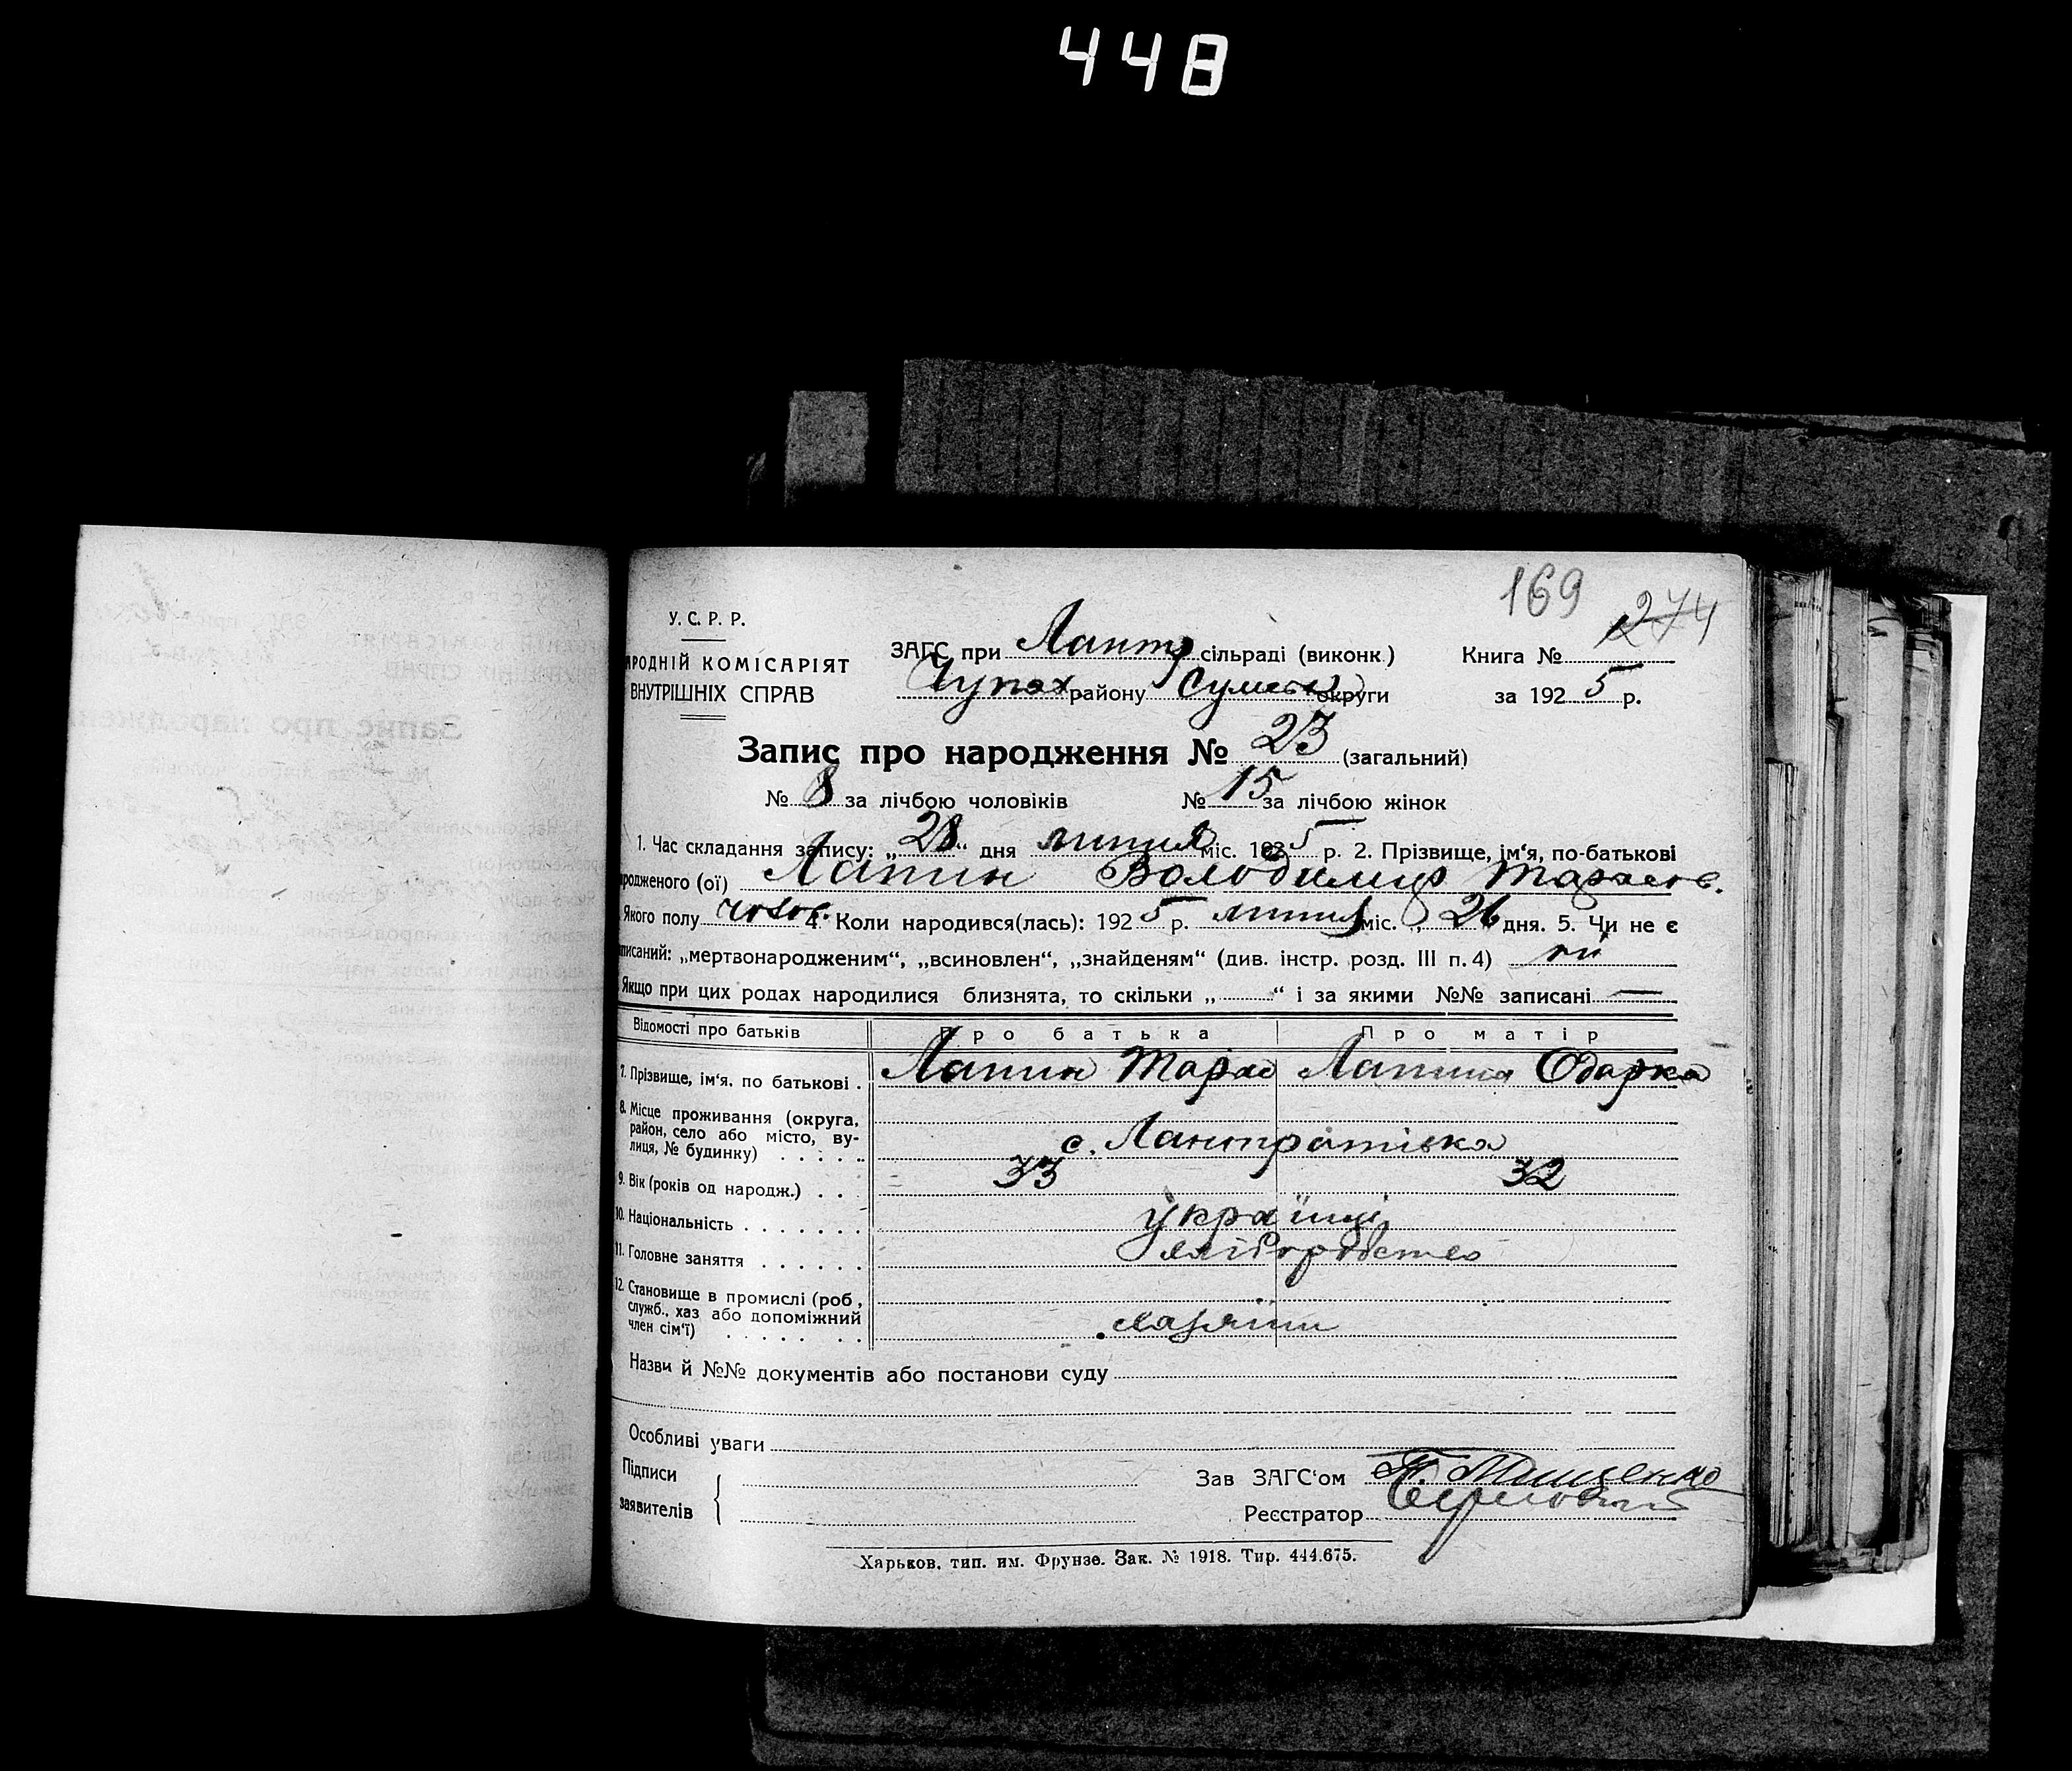 448
169 274
У. С. Р. Р.
АРОДНІЙ КОМІСАРІЯТ
ВНУТРІШНІХ СПРАВ
ЗАГС при Лантр сільраді (виконк.) Книга №
Чупах району Сумськ округи за 1925 р.
Запис про народження № 23 (загальний)
№ 8 за лічбою чоловіків № 15 за лічбою жінок
1. Час складання запису: „28“ дня липня міс. 1925 р. 2. Прізвище, ім'я, по-батькові
родженого (ої) Лапин Володимир Тарасов.
Якого полу чолов. 4. Коли народився(лась): 1925 р. липня міс. „26“ дня. 5. Чи не є
писаний: „мертвонародженим“, „всиновлен“, „знайденям“ (див. інстр. розд. III п. 4) ні
Якщо при цих родах народилися близнята, то скільки „ “ і за якими №№ записані —
Відомості про батьків Про батька Про матір
7. Прізвище, ім'я, по батькові . Лапин Тарас Лапина Одарка
8. Місце проживання (округа,
район, село або місто, ву-
лиця, № будинку) . . . . . с. Лантратівка
9. Вік (років од народж.) . . . 33 32
10. Національність . . . . . . українці
11. Головне заняття . . . . . . хліборобство
12. Становище в промислі (роб.,
служб., хаз або допоміжний
член сім'ї) . . . . . . . хазяїни
Назви й №№ документів або постанови суду
Особливі уваги
Підписи
заявителів
Зав ЗАГС'ом П. Тищенко
Реєстратор
Харьков, тип. им. Фрунзе. Зак. № 1918. Тир. 444.675.